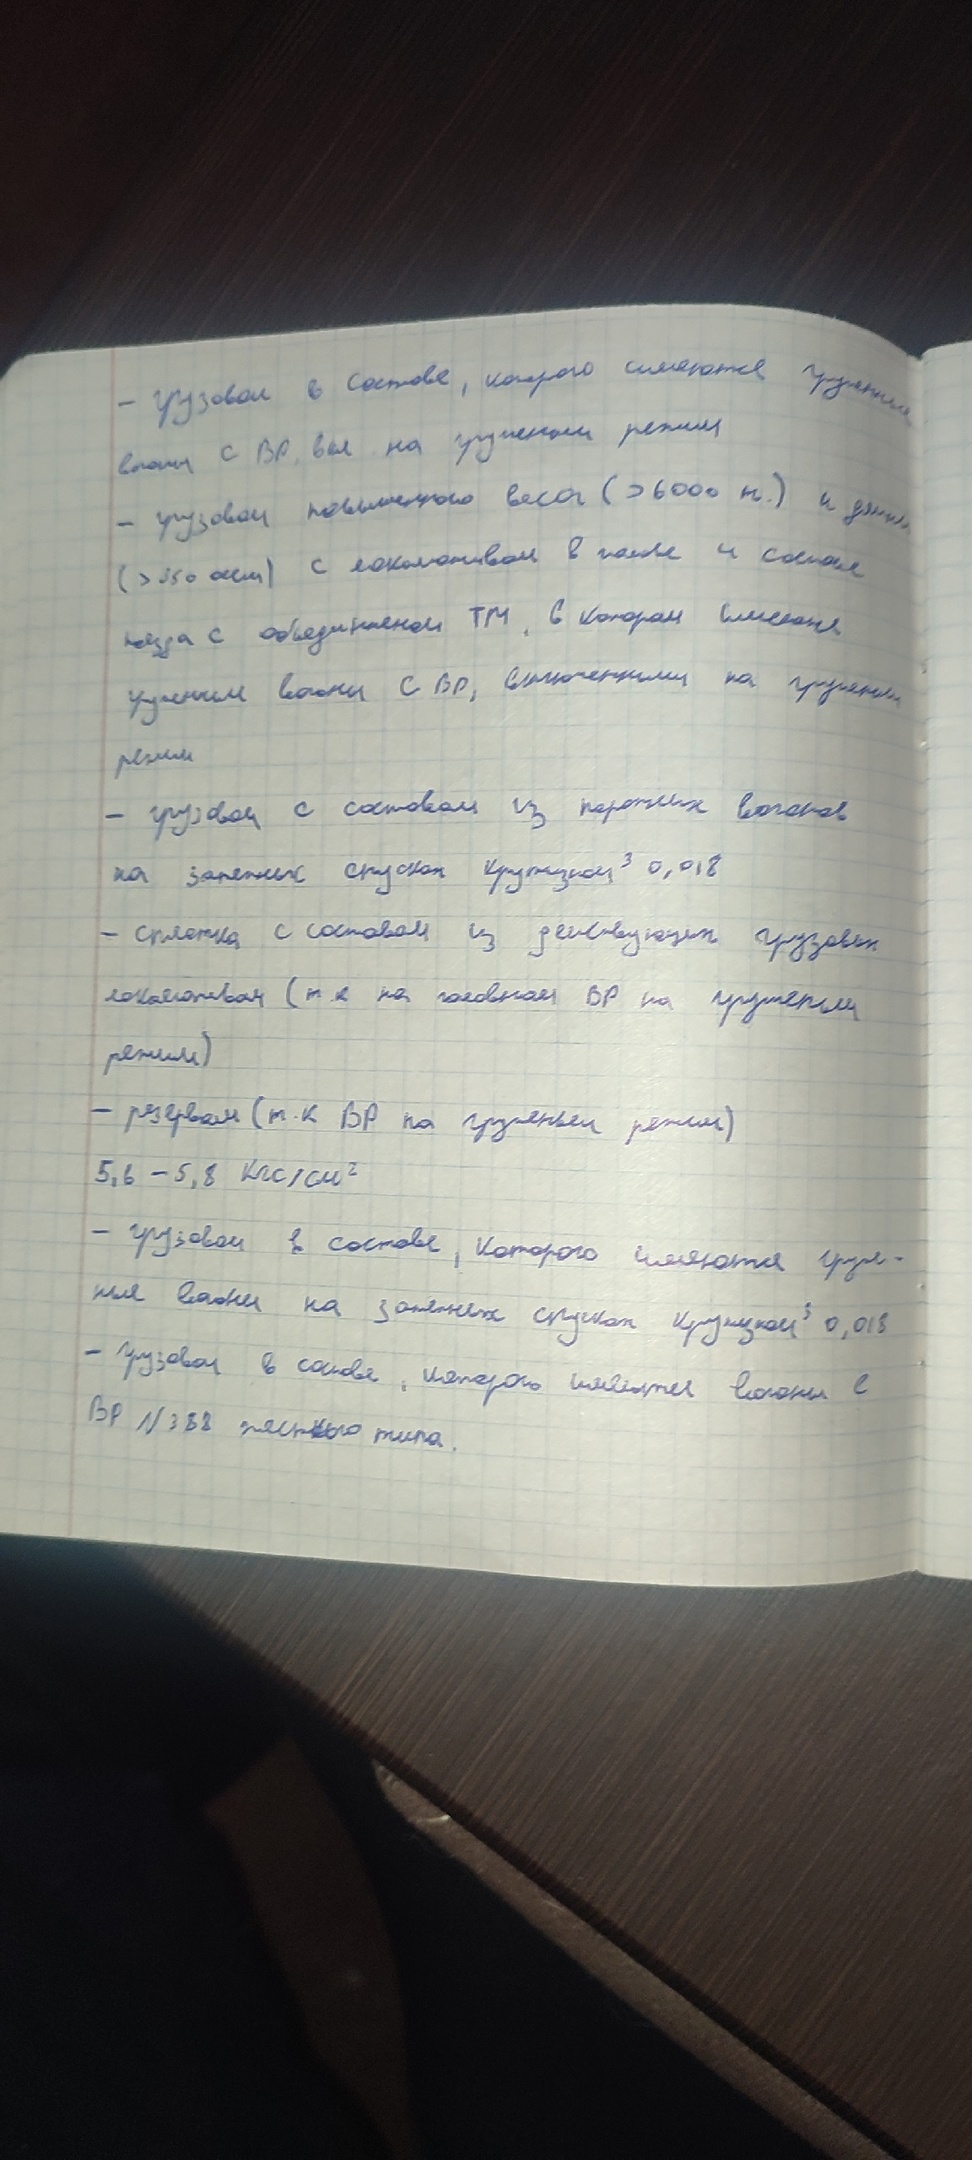 - грузовой в составе, которого имеются груженые
вагоны с ВР, вкл. на груженый режим
- грузовой повышенного веса (>6000 т.) и длины
(>350 осей) с локомотивом в голове и составе
поезда с объединенной ТМ, в котором имеются
груженые вагоны с ВР, включенными на груженый
режим
- грузовой с составом из порожних вагонов
на затяжных спусках крутизной ³ 0,018
- сплотка с составом из действующих грузовых
локомотивов (т.к на головном ВР на груженый
режим)
- резервом (т.к ВР на груженый режим)
5,6 - 5,8 Кгс/см²
- грузовой в составе, которого имеются груже-
ные вагоны на затяжных спусках крутизной ³ 0,018
- грузовой в составе, которого имеются вагоны с
ВР №388 жесткого типа.